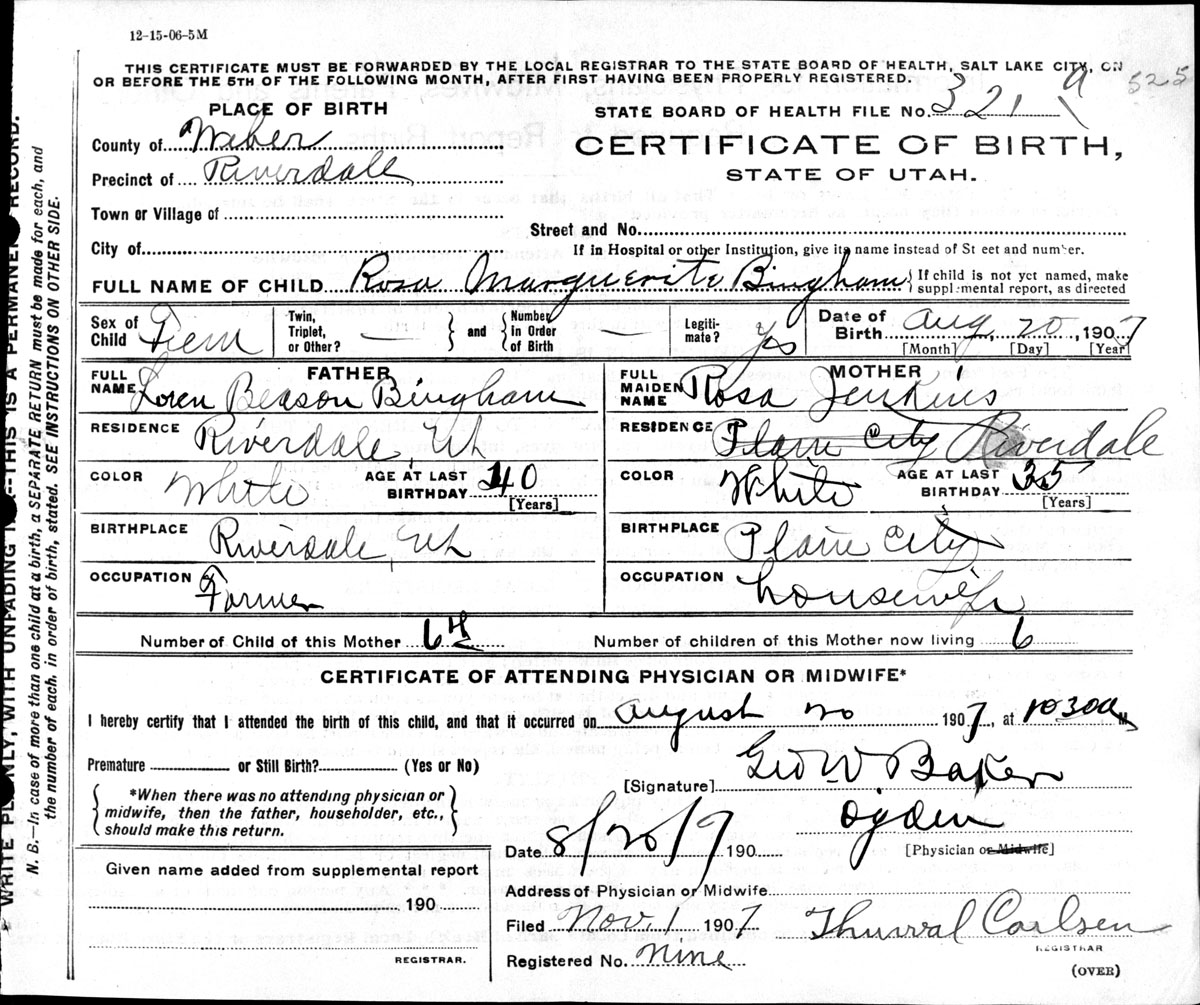 12-15-06-5M
THIS CERTIFICATE MUST BE FORWARDED BY THE LOCAL REGISTRAR TO THE STATE BOARD OF HEALTH, SALT LAKE CITY, ON
OR BEFORE THE 5TH OF THE FOLLOWING MONTH, AFTER FIRST HAVING BEEN PROPERLY REGISTERED.
525
PLACE OF BIRTH
STATE BOARD OF HEALTH FILE No. 321 a
County of Weber
CERTIFICATE OF BIRTH,
Precinct of Riverdale
STATE OF UTAH.
Town or Village of
Street and No.
City of
If in Hospital or other Institution, give its name instead of St eet and number.
FULL NAME OF CHILD Rosa Marguerite Bingham { If child is not yet named, make
supplemental report, as directed
Sex of Child Fem Twin, Triplet, or Other? — and Number in Order of Birth — Legiti-mate? Yes Date of Birth Aug, 20, 1907
[Month] [Day] [Year]
FATHER
FULL NAME Loren Beason Bingham
RESIDENCE Riverdale, Ut
COLOR White AGE AT LAST BIRTHDAY 40 [Years]
BIRTHPLACE Riverdale, Ut
OCCUPATION Farmer
MOTHER
FULL MAIDEN NAME Rosa Jenkins
RESIDENCE Plain City Riverdale
COLOR White AGE AT LAST BIRTHDAY 35 [Years]
BIRTHPLACE Plain City
OCCUPATION housewife
Number of Child of this Mother 6th Number of children of this Mother now living 6
CERTIFICATE OF ATTENDING PHYSICIAN OR MIDWIFE*
I hereby certify that I attended the birth of this child, and that it occurred on August 20 1907, at 1030a M
Premature or Still Birth? (Yes or No)
[Signature] Geo W Baker
*When there was no attending physician or
midwife, then the father, householder, etc.,
should make this return.
Ogden
Date 8/20/7 190 [Physician or Midwife]
Given name added from supplemental report
190
REGISTRAR.
Address of Physician or Midwife
Filed Nov. 1 1907 Thurval Carlsen
REGISTRAR
Registered No. Nine
(OVER)
N. B.—In case of more than one child at a birth, a SEPARATE RETURN must be made for each, and
the number of each, in order of birth, stated. SEE INSTRUCTIONS ON OTHER SIDE.
WITH UNFADING THIS IS A PERMANE RECORD.